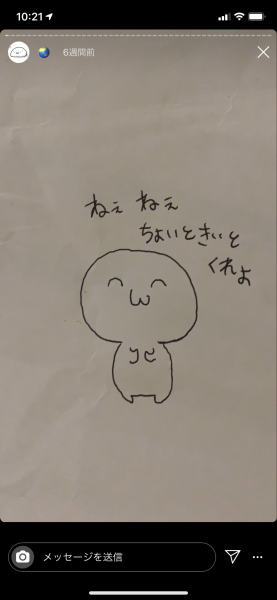 10:21
6週間前
ねぇ ねぇ
ちょいときいと
くれよ
メッセージを送信